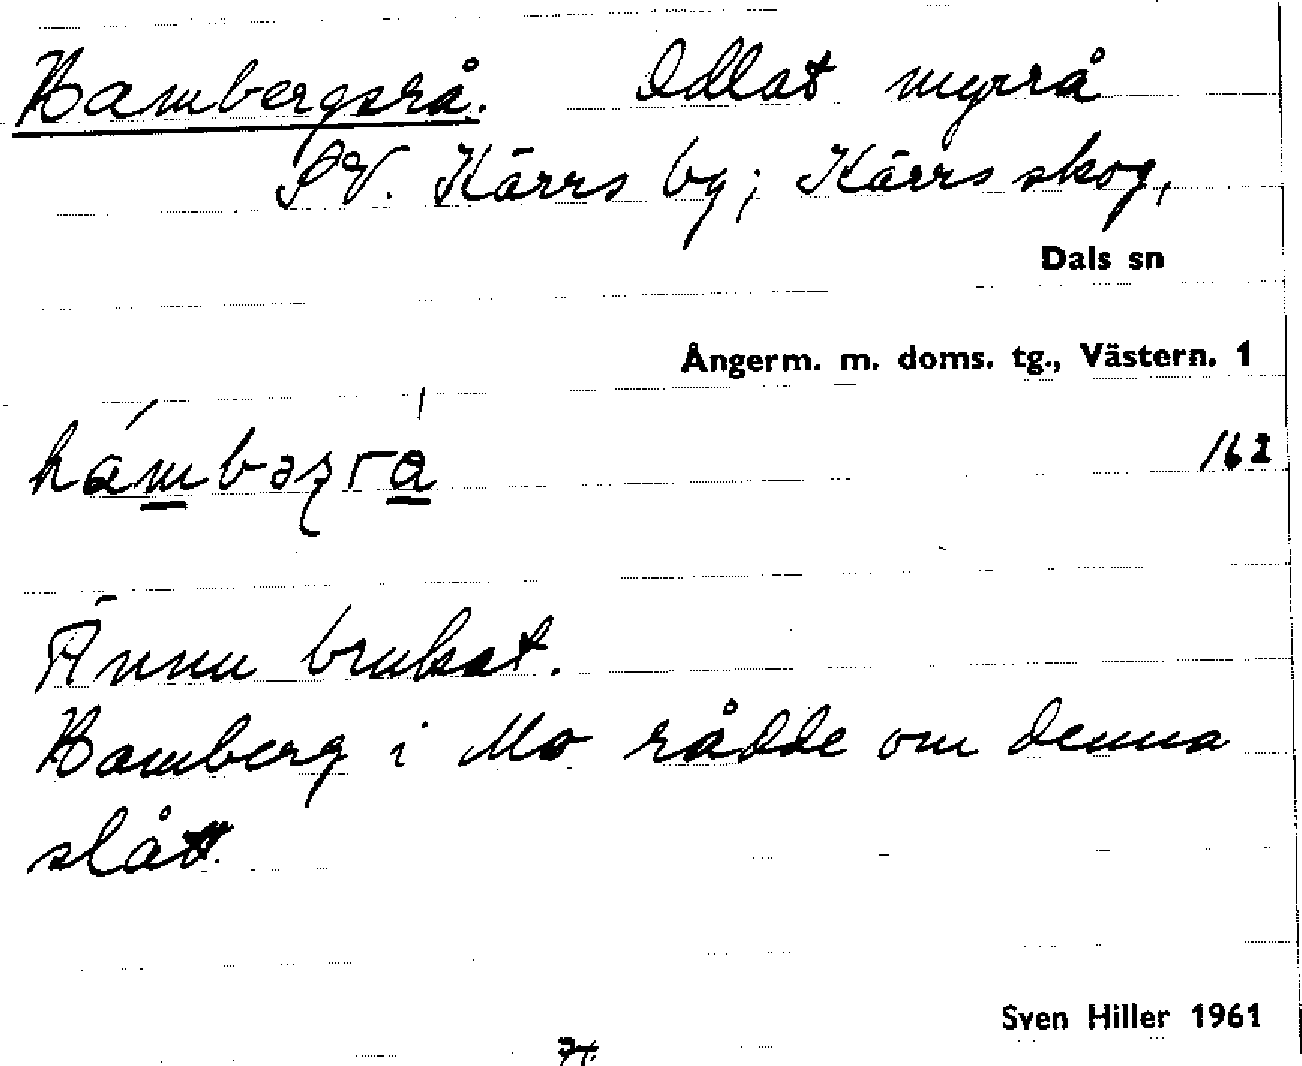 Hambergsrå. Odlat myrrå
SV. Kärrs by; Kärrs skog,
Dals sn
Ångerm. m. doms. tg., Västern. 1
162
Ännu brukat.
Hamberg i Mo rådde om denna
slått.
Sven Hiller 1961